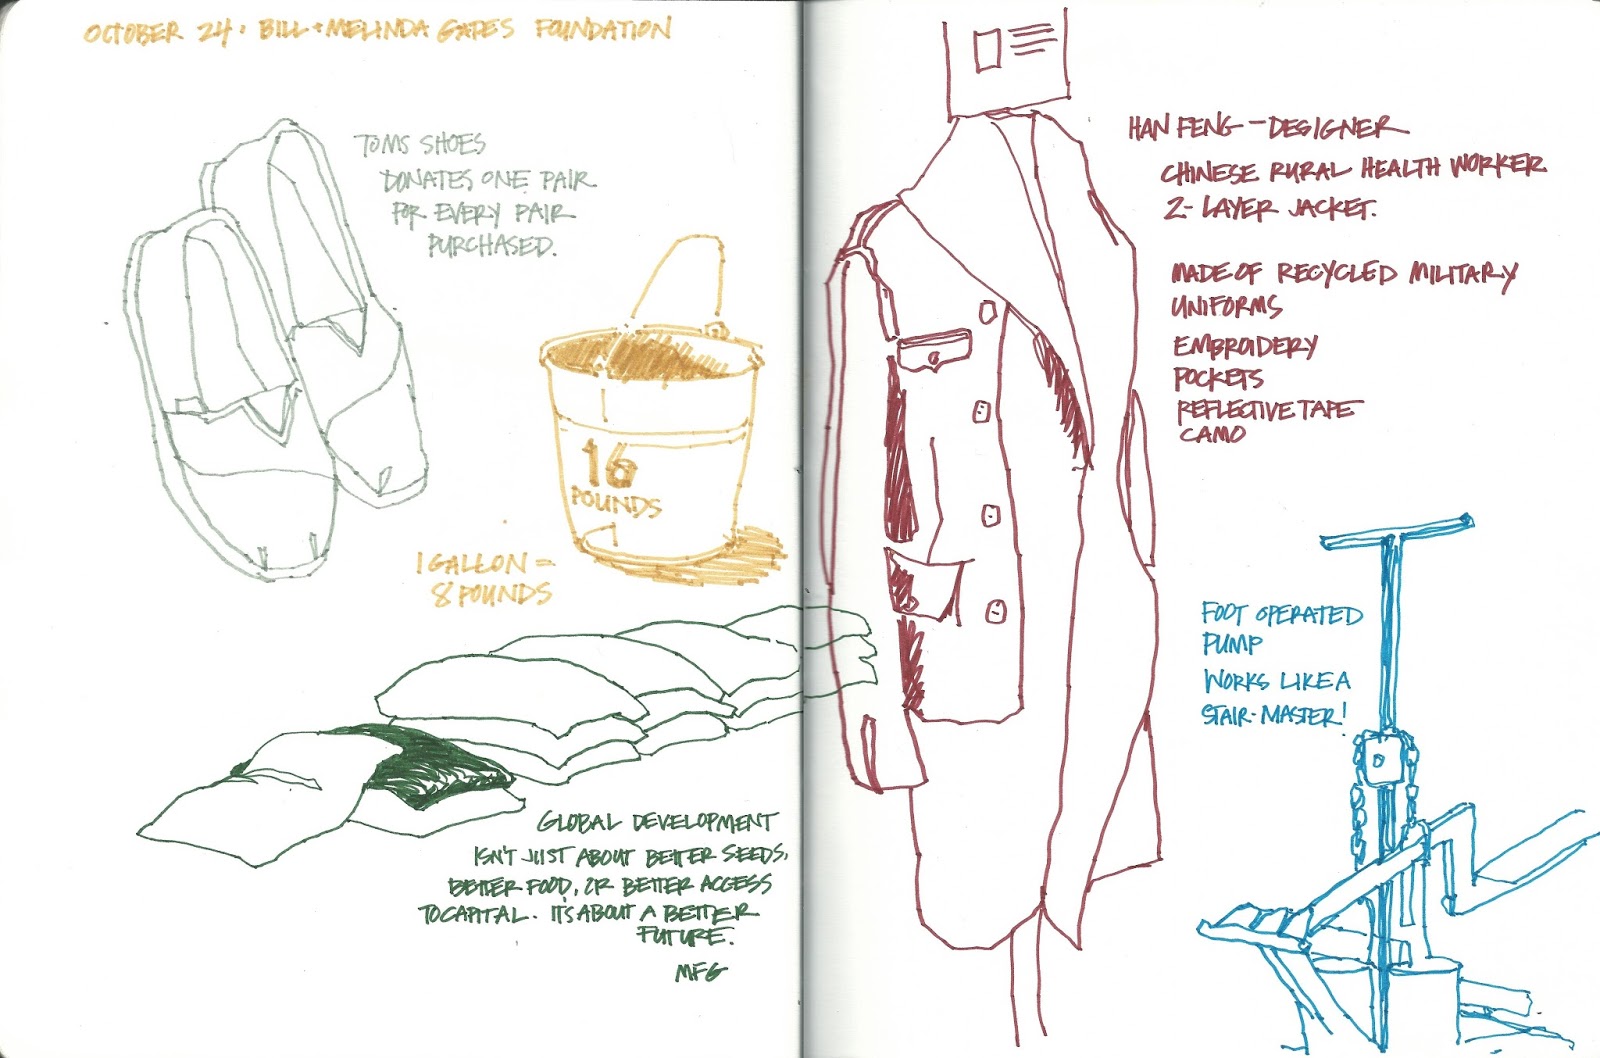 OCTOBER 24 • BILL + MELINDA GATES FOUNDATION
TOMS SHOES
DONATES ONE PAIR
FOR EVERY PAIR
PURCHASED.
16
POUNDS
1 GALLON =
8 POUNDS
GLOBAL DEVELOPMENT
ISN'T JUST ABOUT BETTER SEEDS,
BETTER FOOD, OR BETTER ACCESS
TO CAPITAL. IT'S ABOUT A BETTER
FUTURE.
MFG
HAN FENG - DESIGNER
CHINESE RURAL HEALTH WORKER
2-LAYER JACKET.
MADE OF RECYCLED MILITARY
UNIFORMS
EMBROIDERY
POCKETS
REFLECTIVE TAPE
CAMO
FOOT OPERATED
PUMP
WORKS LIKE A
STAIR-MASTER!